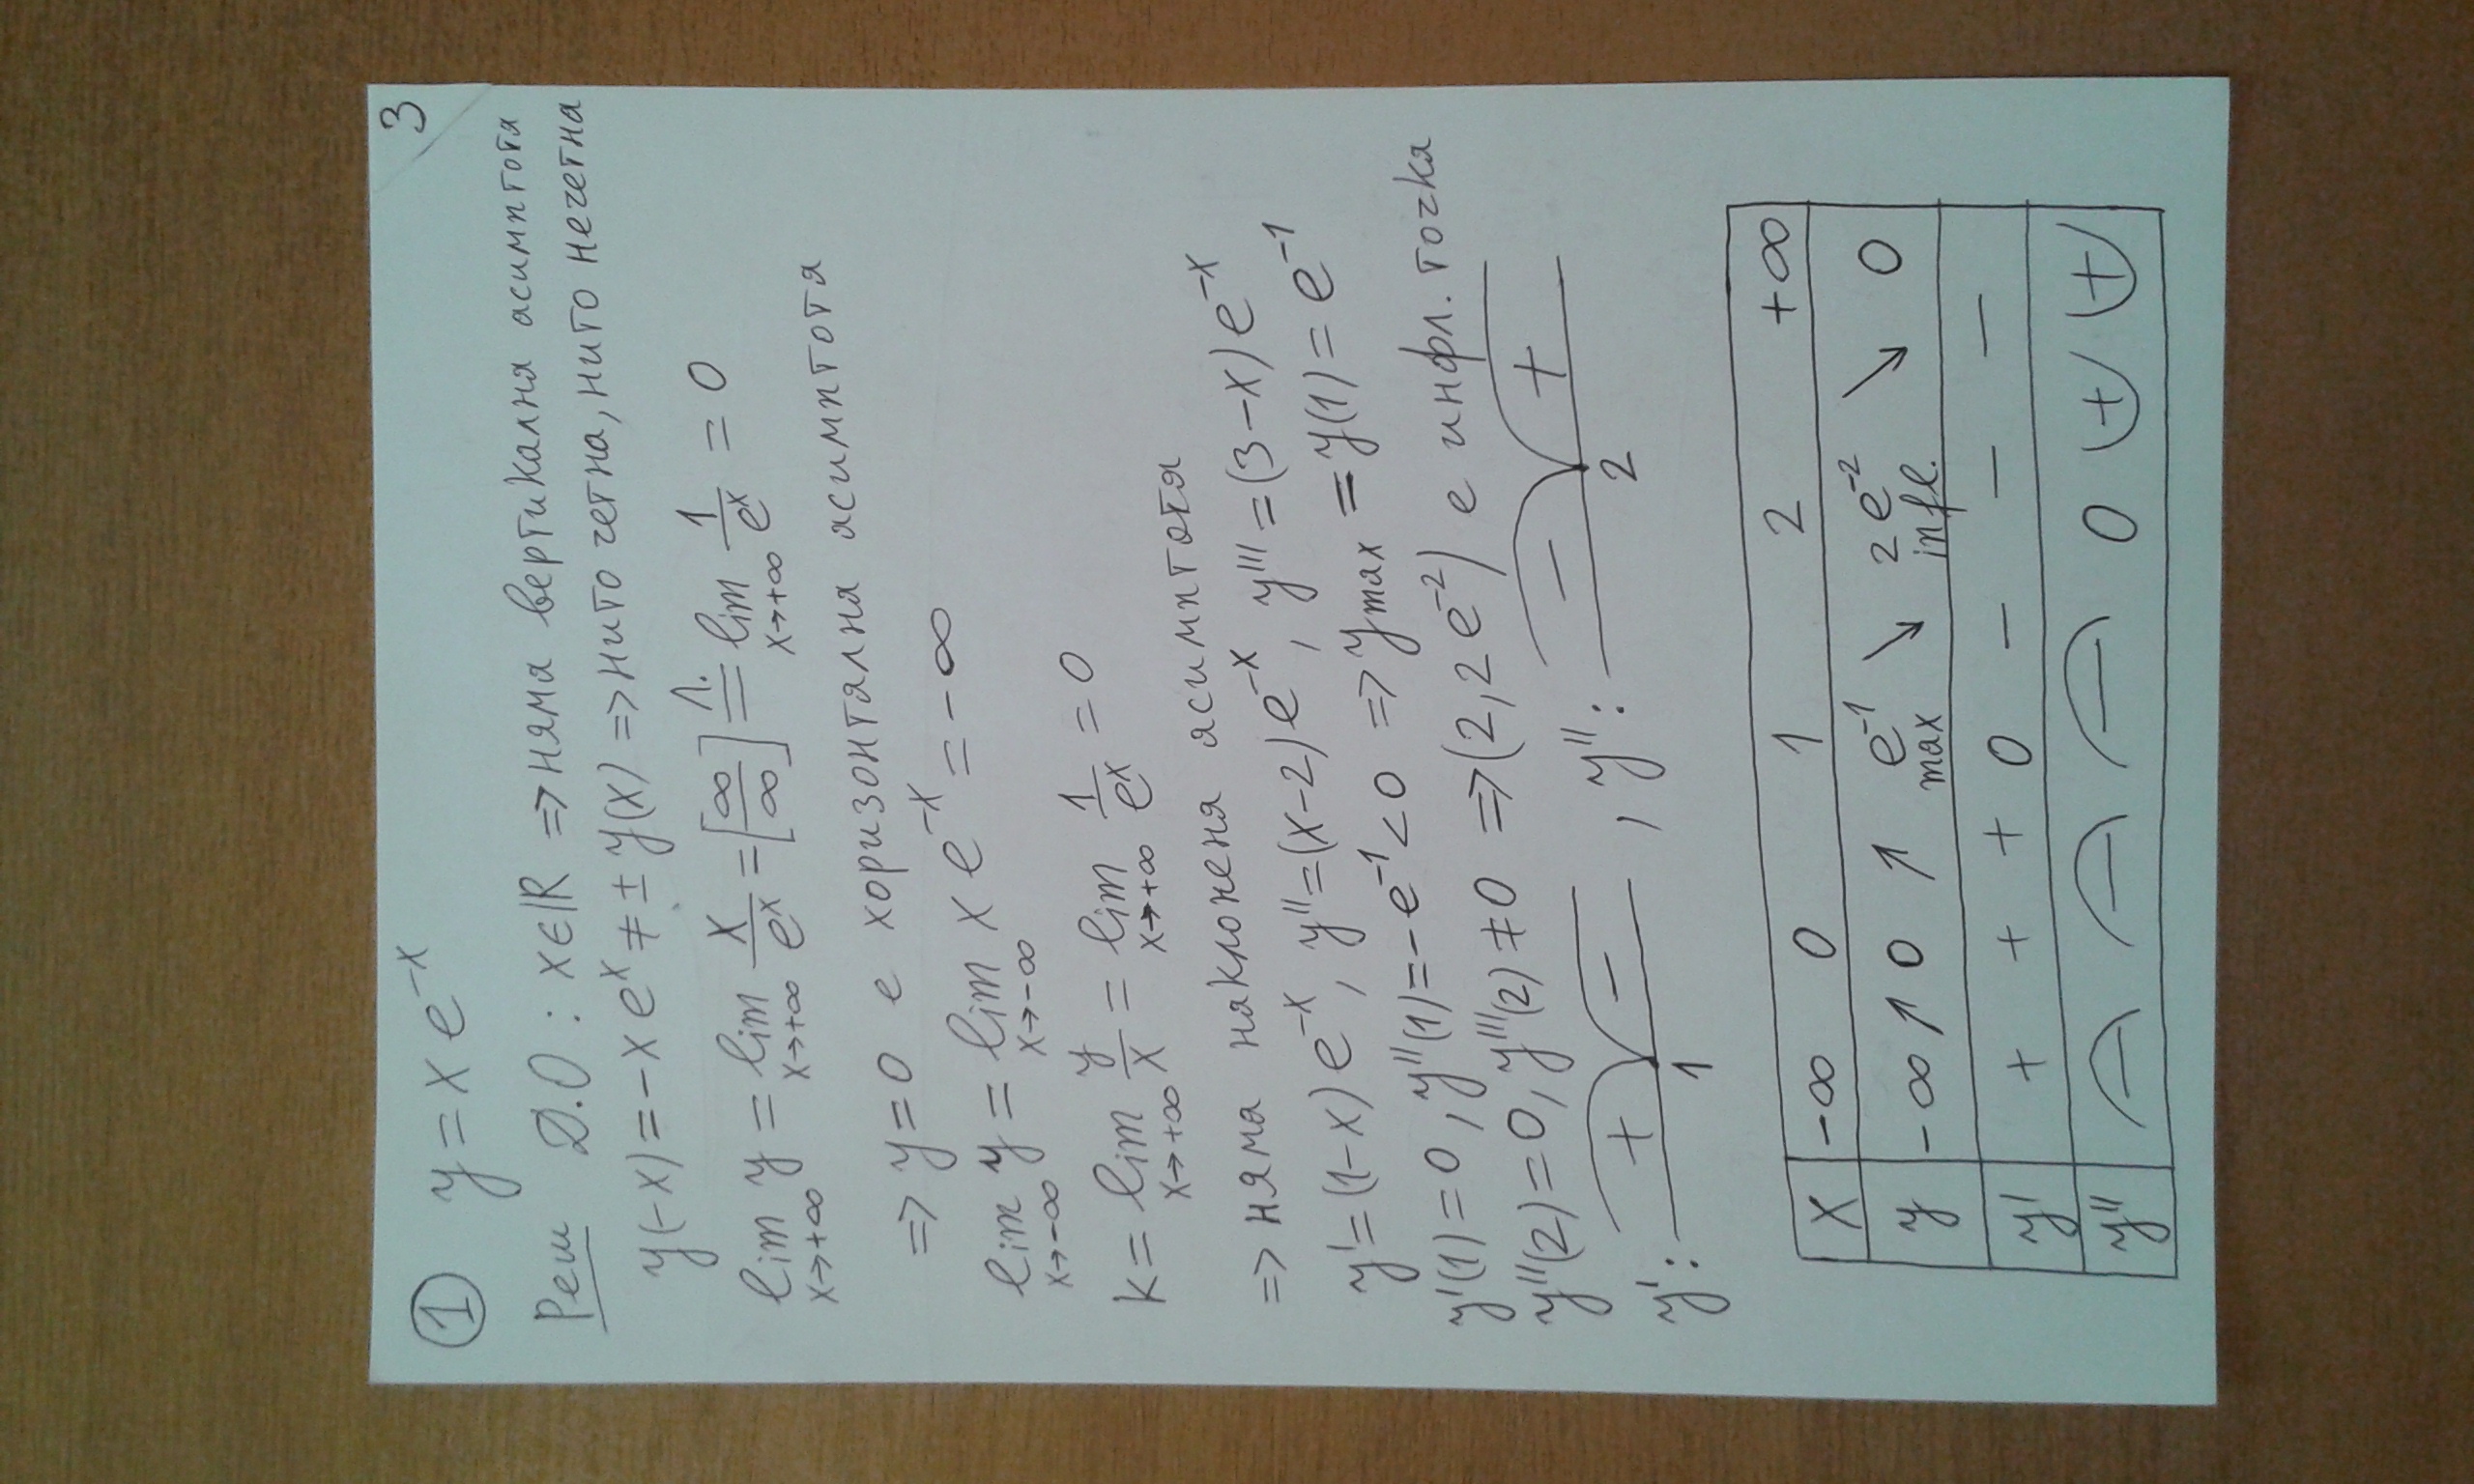 3
① y = x e^{-x}
Реш Д.О : x∈ℝ => няма вертикална асимптота
y(-x) = -x e^x ≠ ± y(x) => нито четна, нито нечетна
lim_{x→+∞} y = lim_{x→+∞} x/e^x = [∞/∞] =^{Л.} lim_{x→+∞} 1/e^x = 0
=> y=0 е хоризонтална асимптота
lim_{x→-∞} y = lim_{x→-∞} x e^{-x} = -∞
k = lim_{x→+∞} y/x = lim_{x→+∞} 1/e^x = 0
=> няма наклонена асимптота
y' = (1-x) e^{-x}, y'' = (x-2) e^{-x}, y''' = (3-x) e^{-x}
y'(1) = 0, y''(1) = -e^{-1} < 0 => y_{max} = y(1) = e^{-1}
y''(2) = 0, y'''(2) ≠ 0 => (2, 2e^{-2}) е инфл. точка
y': + 1 − , y'': − 2 +
x -∞ 0 1 2 +∞
y -∞ ↗ 0 ↗ e^{-1} max ↘ 2e^{-2} infl. ↘ 0
y' + + + 0 − − −
y'' − − − 0 + +